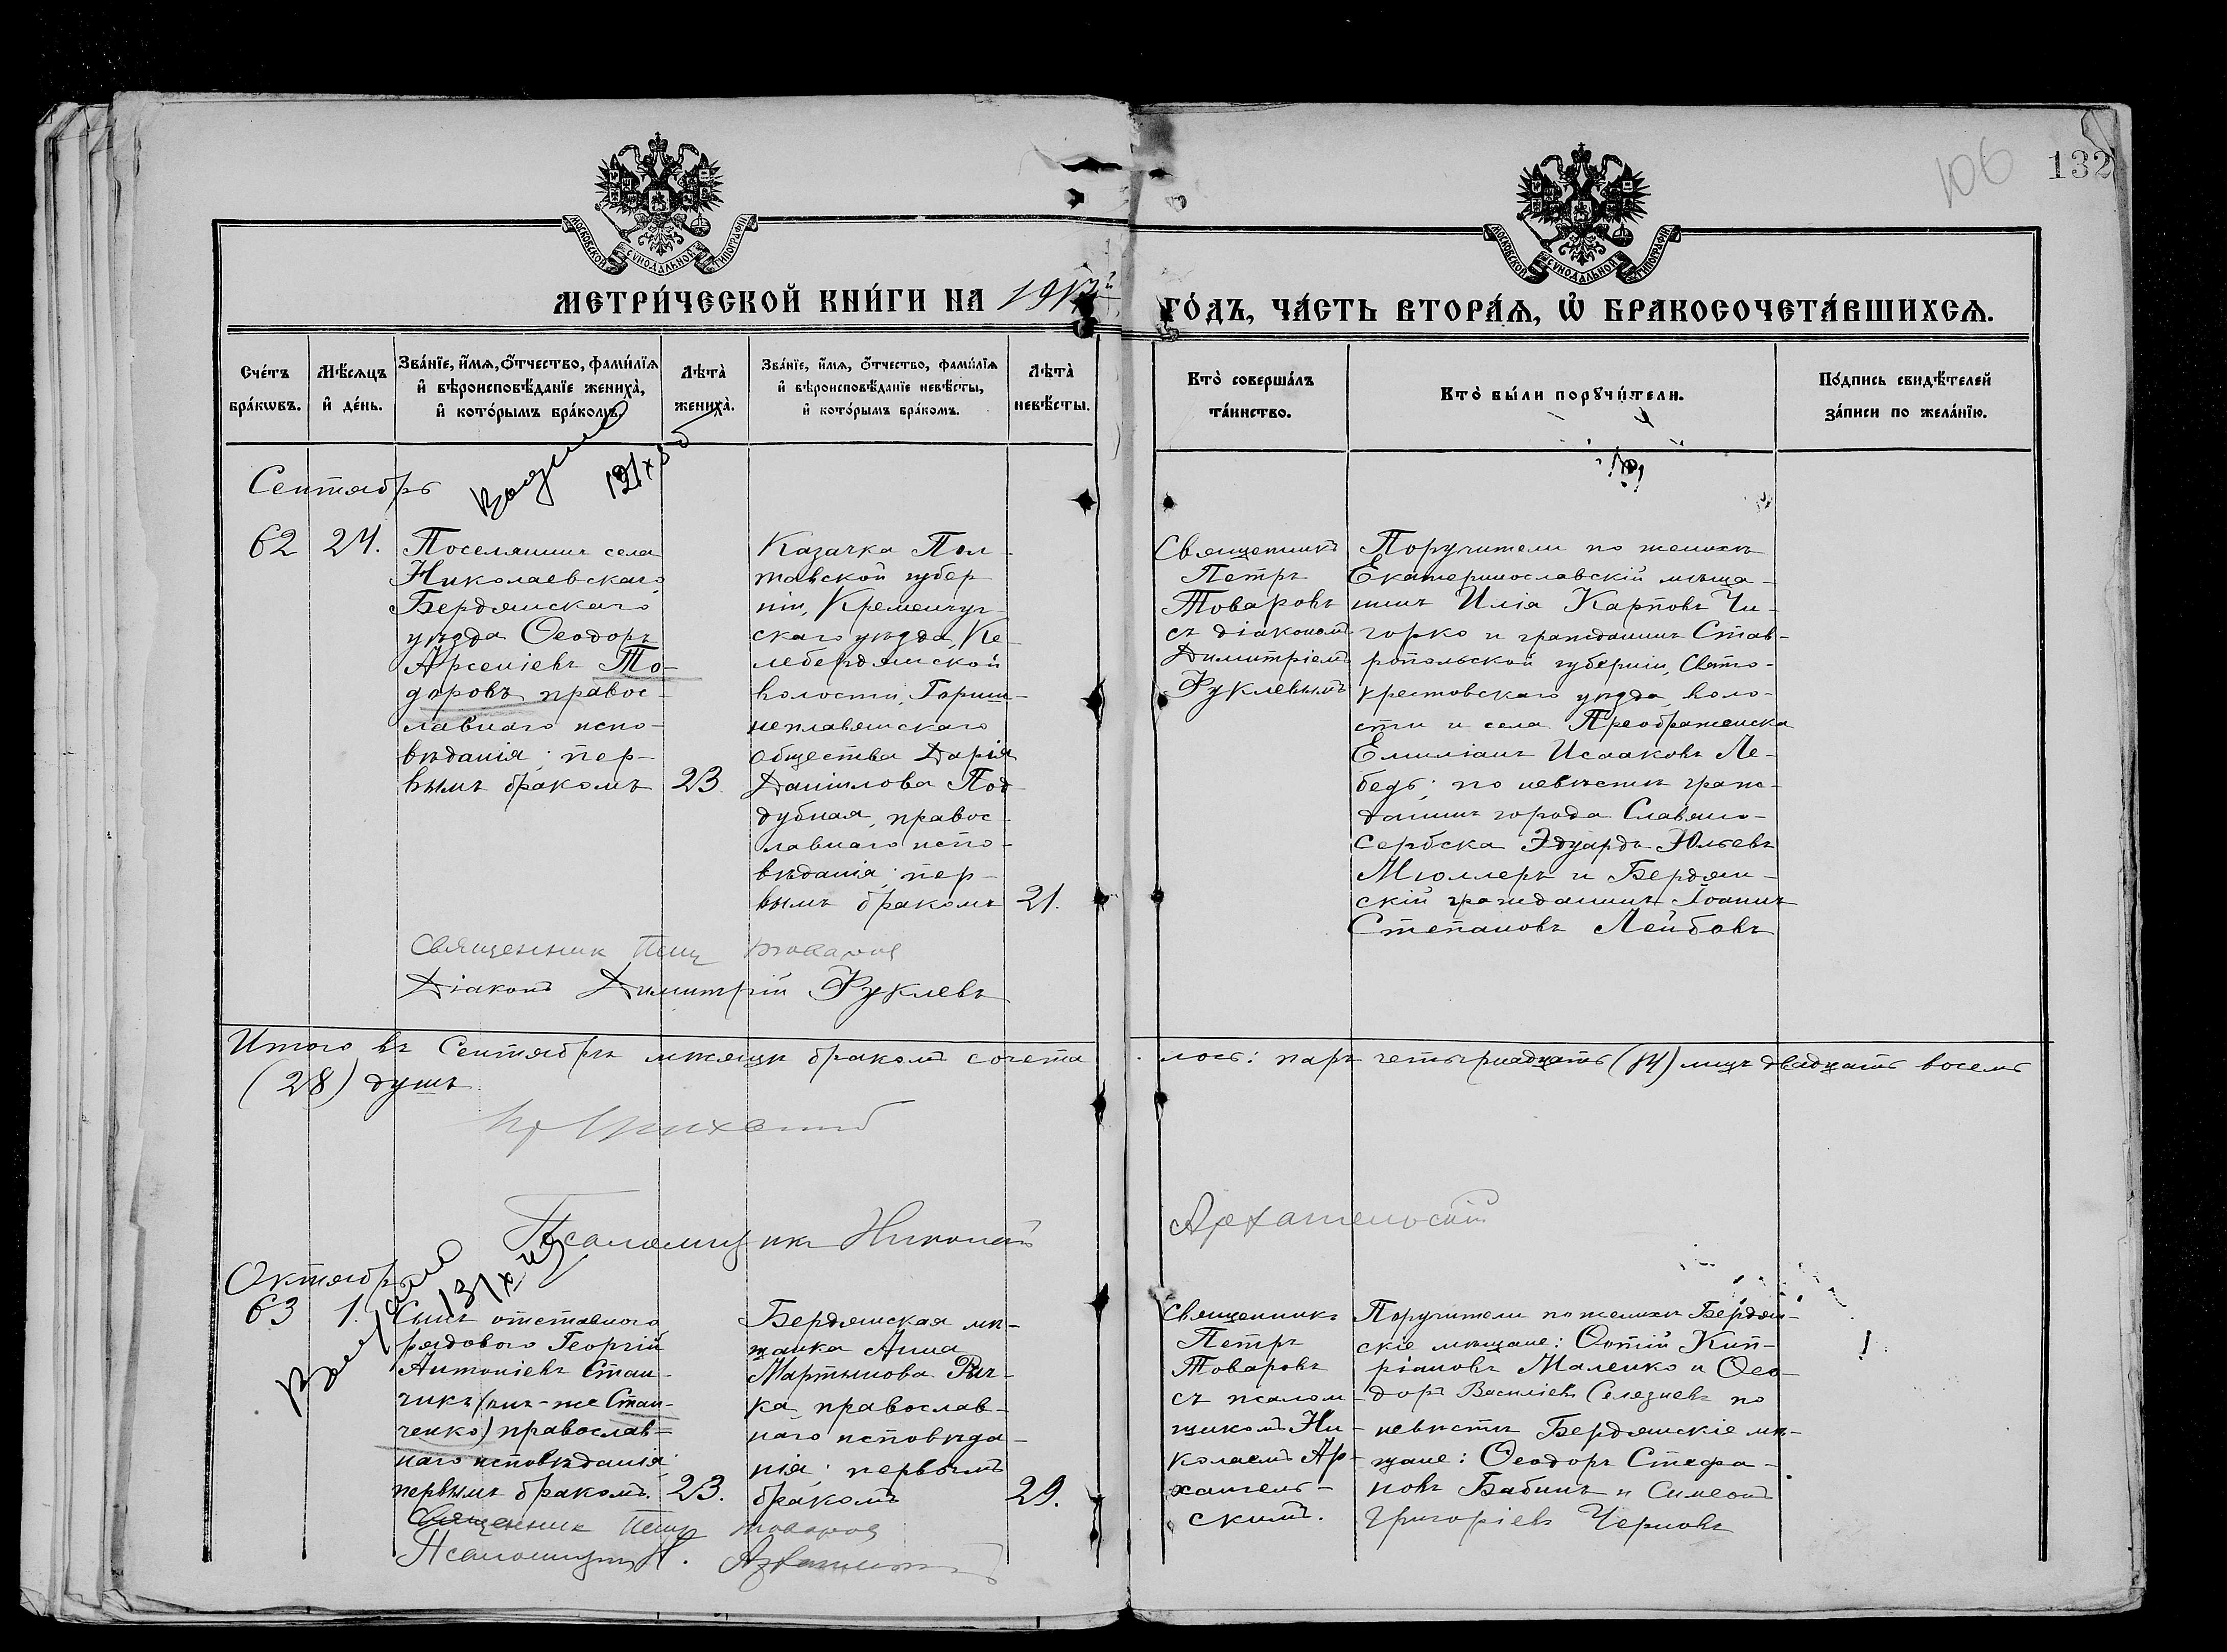 106
132
МОСКОВСКОЙ СѴНОДАЛЬНОЙ ТИПОГРАФІИ
МОСКОВСКОЙ СѴНОДАЛЬНОЙ ТИПОГРАФІИ
МЕТРИ́ЧЕСКОЙ КНИ́ГИ НА
ГО́ДЪ, ЧА́СТЬ ВТОРА́Ѧ, Ѡ҆ БРАКОСОЧЕТА́ВШИХСѦ.
Сче́тъ
бра́кѡвъ.
Мѣ́сяцъ
и҆ де́нь.
Зва́нїе, и҆́мя, ѻ҆́тчество, фами́лїя
и҆ вѣроисповѣ́данїе жениха̀,
и҆ кото́рымъ бра́комъ.
Лѣта̀
жениха̀.
Зва́нїе, и҆́мя, ѻ҆́тчество, фами́лїя
и҆ вѣроисповѣ́данїе невѣ́сты,
и҆ кото́рымъ бра́комъ.
Лѣта̀
невѣ́сты.
Кто̀ соверша́лъ
та́инство.
Кто̀ бы́ли порꙋчи́тели.
По́дпись свидѣ́телей
за́писи по жела́нїю.
Сентябрь
62
24.
Поселянинъ села
Николаевскаго
Бердянскаго
уѣзда Ѳеодоръ
Арсеніевъ То-
доровъ правос-
лавнаго испо-
вѣданія; пер-
вымъ бракомъ
23
Казачка Пол-
тавской губер
ніи, Кременчуг
скаго уѣзда, Ке-
лебердянской
волости, Гориш-
неплавянскаго
общества Дарія
Даніилова Под-
дубная, правос-
лавнаго испо-
вѣданія; пер-
вымъ бракомъ
21.
Священникъ
Петръ
Товаровъ
съ діакономъ
Димитріемъ
Фуклевымъ
Поручители по женихѣ
Екатеринославскій мѣща-
нинъ Илія Карповъ Чи-
горко и гражданинъ Став-
ропольской губерніи, Свято-
крестовскаго уѣзда, воло-
сти и села Преображенска
Емиліанъ Исааковъ Ле-
бедь; по невѣстѣ граж-
данинъ города Славяно-
сербска Эдуардъ Юльевъ
Мюллеръ и Бердян-
скій гражданинъ Іоаннъ
Степановъ Лейбовъ
Священник Петр Товаров
Діаконъ Димитрій Фуклевъ
Итого въ Сентябрѣ мѣсяцѣ бракомъ сочета
лось: паръ четырнадцать (14) лицъ двадцать восемь
(28) душъ.
Псаломщикъ Николай
Архангельскій
Октябрь
63
1.
Сынъ отставного
рядового Георгій
Антоніевъ Стан-
чикъ (онъ-же Стан-
ченко) православ-
наго исповѣданія
первымъ бракомъ.
23.
Бердянская мѣ-
щанка Анна
Мартынова Рѣч-
ка, православ-
наго исповѣда-
нія; первымъ
бракомъ
29.
Священникъ
Петръ
Товаровъ
съ псалом-
щикомъ Ни-
колаемъ Ар-
хангель-
скимъ.
Поручители по женихѣ Бердян-
скіе мѣщане: Ѳотій Кип-
ріановъ Маленко и Ѳео-
доръ Василіевъ Селезневъ по
невѣстѣ Бердянскіе мѣ-
щане: Ѳеодоръ Стефа-
новъ Бабинъ и Симеонъ
Григоріевъ Черновъ
Священник Петр Товаров
Псаломщикъ Н. Архангельскій